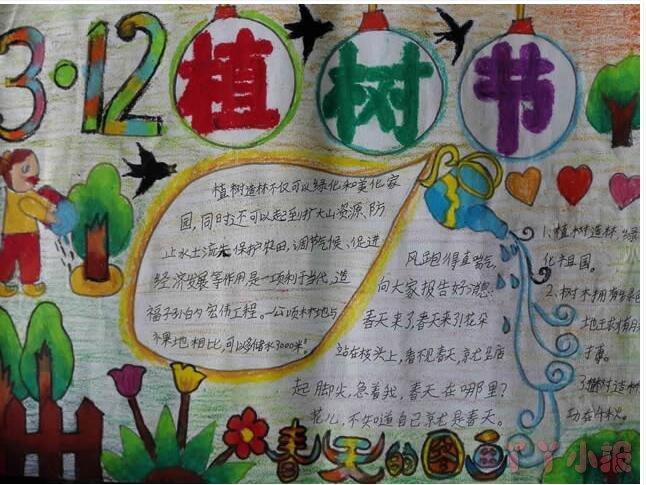 3·12植树节
植树造林不仅可以绿化和美化家
园,同时还可以起到扩大山资源、防
止水土流失保护农田、调节气候、促进
经济发展等作用,是一项利于当代、造
福子孙的宏伟工程。一公顷林地与
地相比,可以多储水3000米³
风跑得直喘气,
向大家报告好消息:
春天来了,春天来了!花朵
站在枝头上,看不见春天,就
起脚尖,急着找,春天在哪里?
花儿,不知道自己就是春天。
1、植树造林绿
化祖国。
2、树木拥有绿色
地球
3、植树造林
功在千秋。
春天的图画
丫丫小报